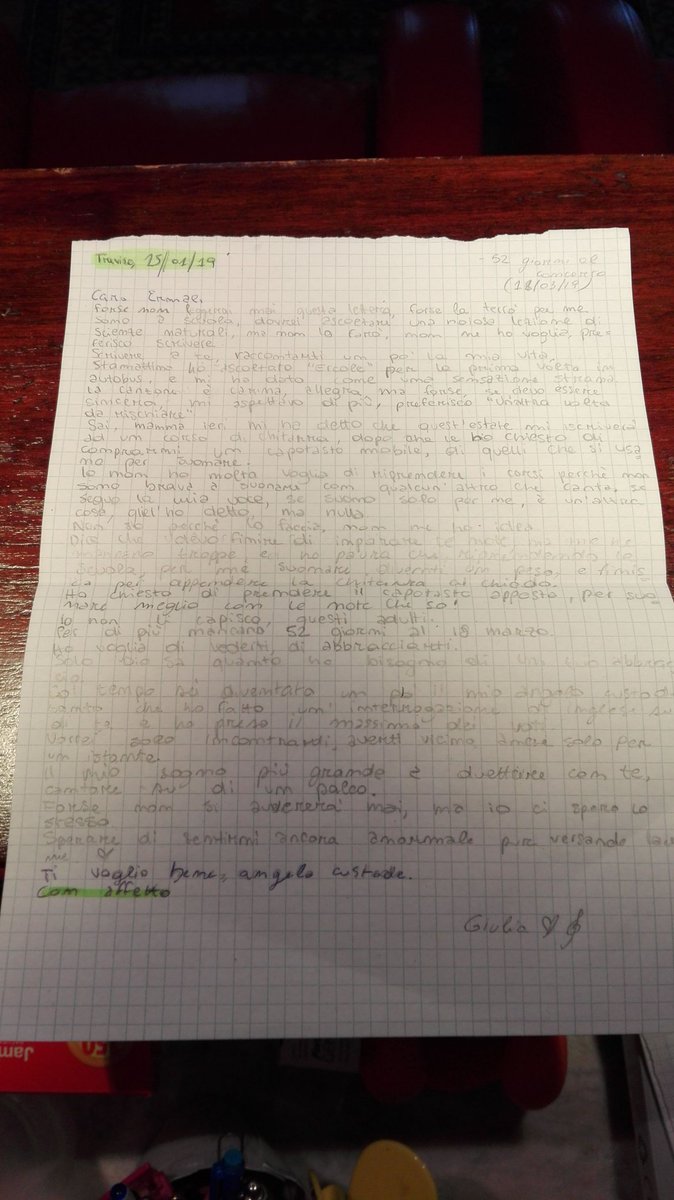 Treviso, 25/01/19
- 52 giorni al
concerto
(18/03/19)
Caro Ermal,
forse non leggerai mai questa lettera, forse la terrò per me.
Sono a scuola, dovrei ascoltare una noiosa lezione di
scienze naturali, ma non lo farò, non ne ho voglia, pre-
ferisco scrivere.
Scrivere a te, raccontarti un po' la mia vita.
Stamattina ho ascoltato "Ercole" per la prima volta in
autobus, e mi ha dato come una sensazione strana.
La canzone è carina, allegra, ma forse, se devo essere
sincera, mi aspettavo di più, preferisco "Un'altra volta
da rischiare".
Sai, mamma ieri mi ha detto che quest'estate mi iscriverà
ad un corso di chitarra, dopo che le ho chiesto di
comprarmi un capotasto mobile, di quelli che si usa
no per suonare.
Io non ho molta voglia di riprendere i corsi perché non
sono brava a suonare con qualcun'altro che canta, se
seguo la mia voce, se suono solo per me, è un'altra
cosa, gliel'ho detto, ma nulla.
Non so perché lo faccia, non ne ho idea.
Dice che devo finire di imparare le note, ma me ne
mancano troppe ed ho paura che riprendendo la
scuola, per me suonare, diventi un peso, e finis-
ca per appendere la chitarra al chiodo.
Ho chiesto di prendere il capotasto apposta, per suo
nare meglio con le note che so!
Io non li capisco, questi adulti.
Per di più mancano 52 giorni al 18 marzo.
Ho voglia di vederti, di abbracciarti.
Solo Dio sa quanto ho bisogno di un tuo abbrac
cio.
Col tempo sei diventato un po' il mio angelo custode
tanto che ho fatto un' interrogazione di inglese su
di te e ho preso il massimo dei voti.
Vorrei solo incontrarti, averti vicino anche solo per
un istante.
Il mio sogno più grande è duettare con te,
cantare su di un palco.
Forse non si avvererà mai, ma io ci spero lo
stesso.
Sperare di sentirmi ancora anormale pur versando lacri
me ♡
Ti voglio bene, angelo custode.
Con affetto
Giulia ♡
Jam